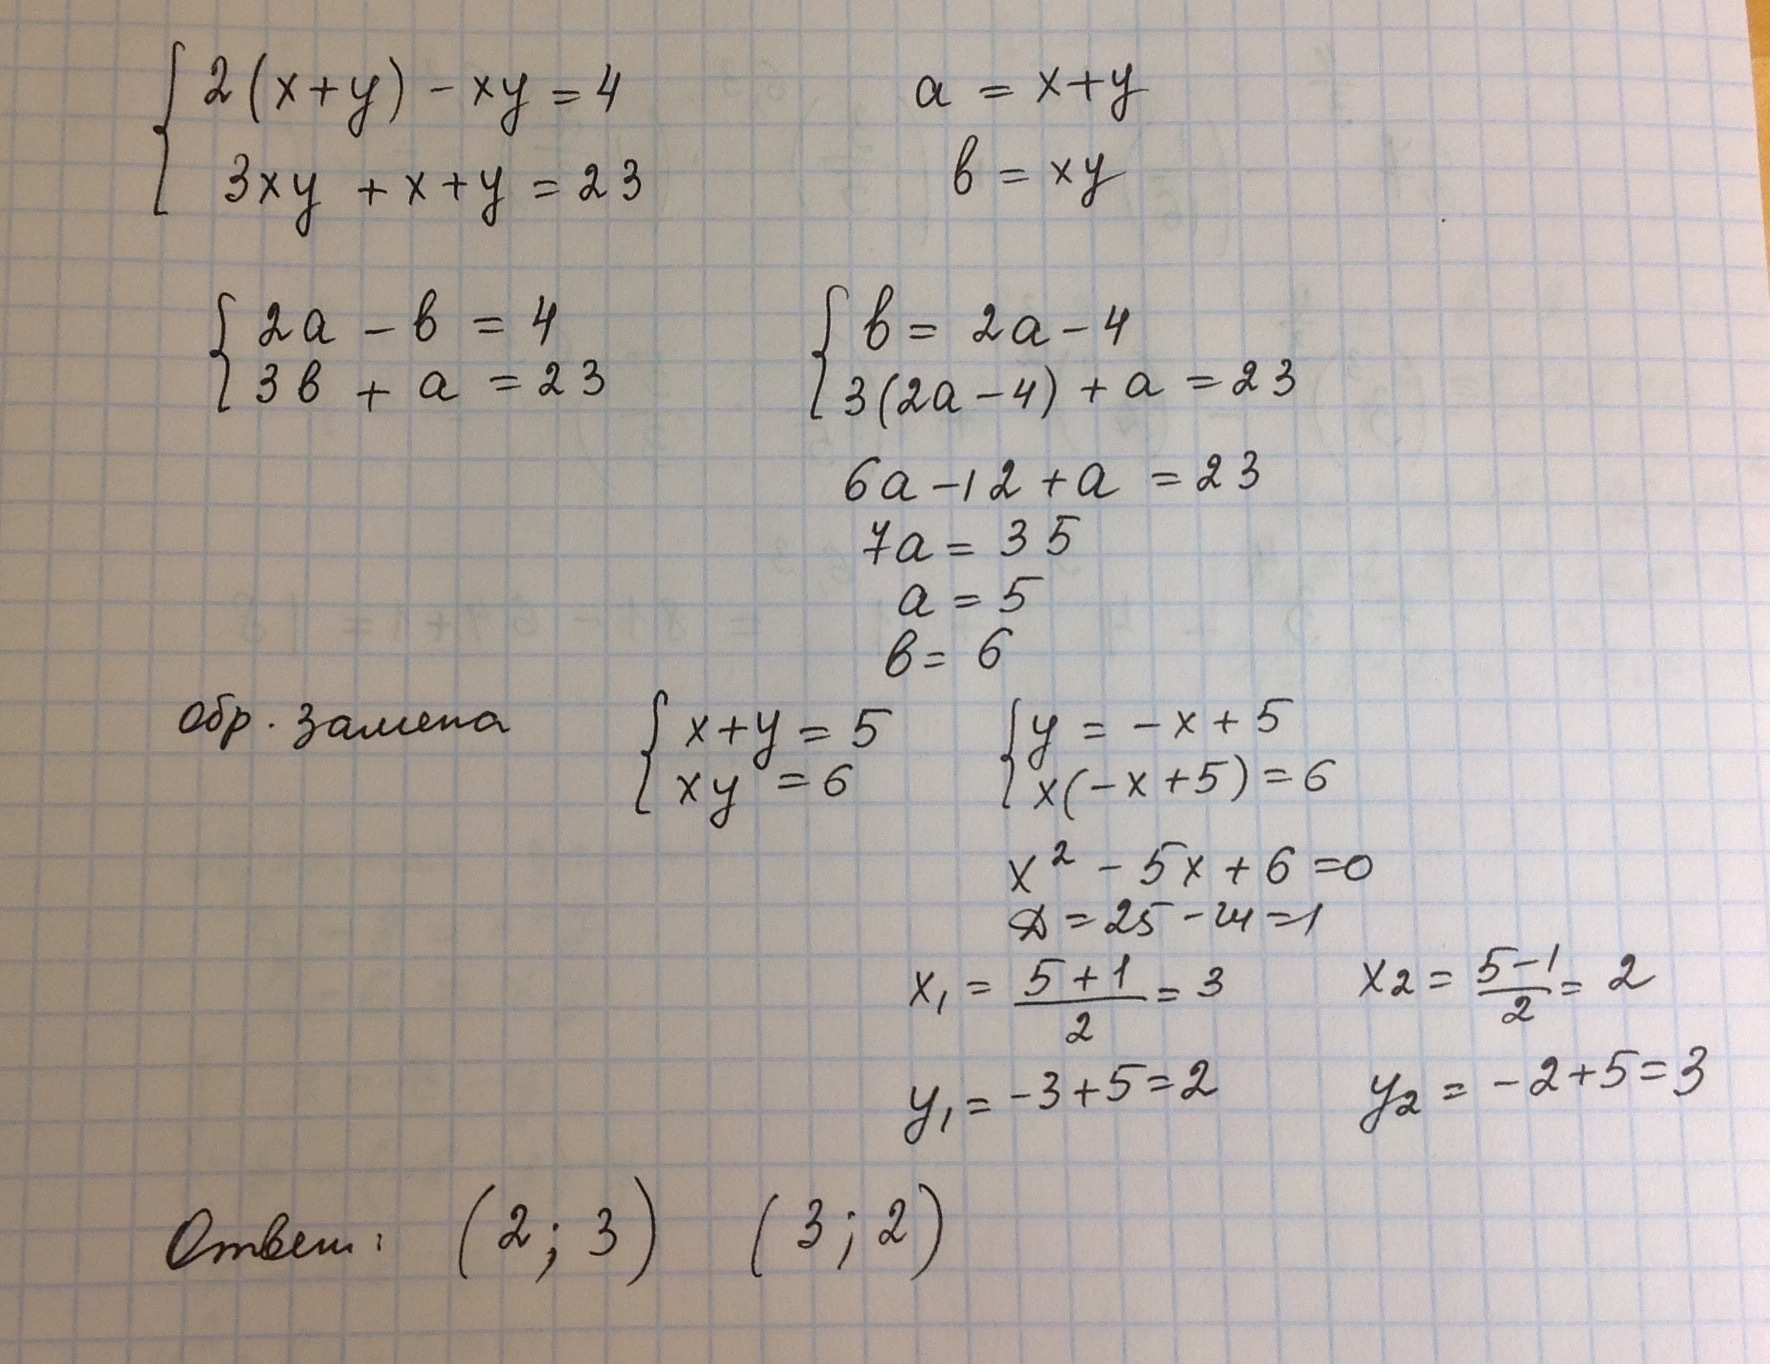 2(x+y) - xy = 4    a = x+y
3xy + x+y = 23    в = xy
2a - в = 4    в = 2a - 4
3в + a = 23    3(2a - 4) + a = 23
6a - 12 + a = 23
7a = 35
a = 5
в = 6
Обр. замена    x+y = 5    y = -x + 5
xy = 6    x(-x+5) = 6
x² - 5x + 6 = 0
D = 25 - 24 = 1
x₁ = (5+1)/2 = 3    x₂ = (5-1)/2 = 2
y₁ = -3+5 = 2    y₂ = -2+5 = 3
Ответ: (2; 3)    (3; 2)